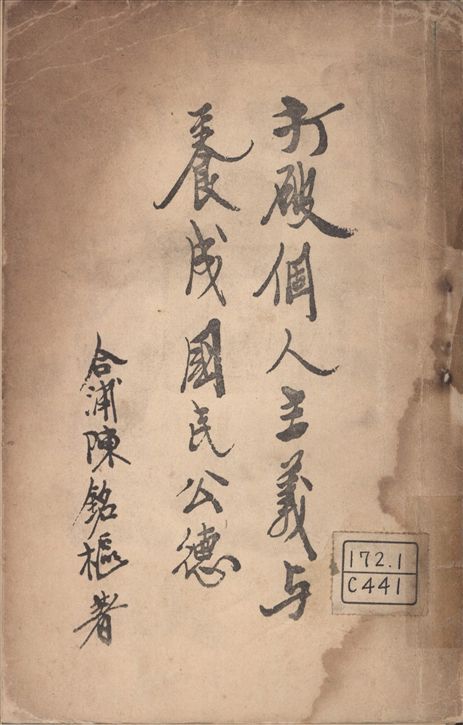 打破個人主義与
養成國民公德
合浦陳銘樞著
172.1
C441